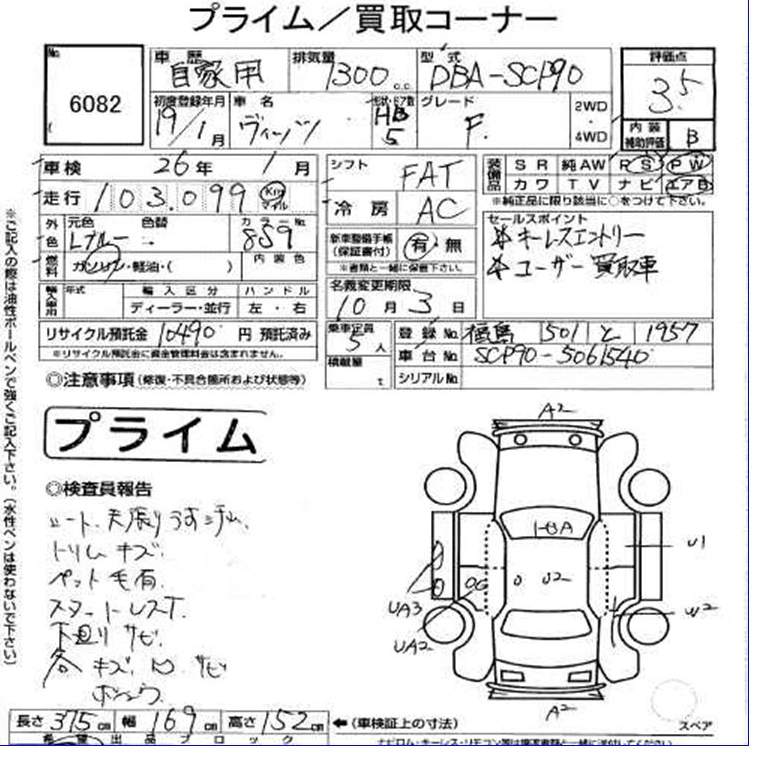 プライム／買取コーナー
No. 6082
車歴 自家用 排気量 1300 c.c. 型式 DBA-SCP90 評価点 3.5
初度登録年月 19/1月 車名 ヴィッツ 形状・ドア数 HB 5 グレード F. 2WD・4WD 内装補助評価 B
車検 26年 1月 シフト FAT 装備品 SR 純AW PS PW
走行 103.099 Km マイル 冷房 AC カワ TV ナビ エアB
※純正品に限り該当に○をつけて下さい。
外色 元色 Lブルー 色替 カラーNo. 8S9 新車整備手帳(保証書付) 有・無 セールスポイント
燃料 ガソリン・軽油・( ) 内装色 ※書類と一緒に保管下さい。 ※キーレスエントリー
輸入車用 年式 輸入区分 ハンドル 名義変更期限 ※ユーザー買取車
ディーラー・並行 左・右 10月3日
リサイクル預託金 10490 円 預託済み 乗車定員 5人 登録No. 福島 501 と 1957
※リサイクル預託金に資金管理料金は含まれません。 積載量 t 車台No. SCP90-5061540
シリアルNo.
◎注意事項(修復・不具合箇所および状態等)
プライム
◎検査員報告
シート、天張りうすジム、
トリムキズ、
ペット毛有、
スタートレスT.
下廻りサビ
各キズ、凹サビ
ボシュウ
A2
HBA
U1
U2
UA3
UA2
A2
スペア
長さ 375 cm 幅 169 cm 高さ 152 cm ←(車検証上の寸法)
希望出品ブロック
※ご記入の際は油性ボールペンで強くご記入下さい。(水性ペンは使わないで下さい)